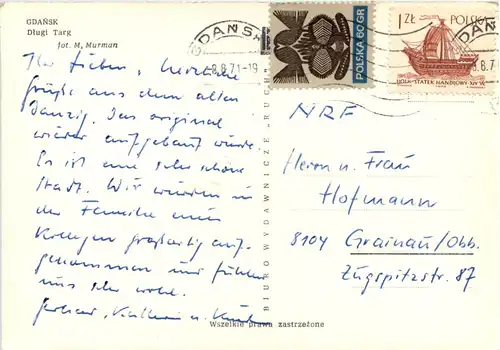 GDAŃSK
Długi Targ
fot. M. Murman
GDAŃSK
8.8.71-19
POLSKA 60 GR
1 ZŁ POLSKA
HOLK-STATEK HANDLOWY-XIV W.
Ihr Lieben, herzliche
Grüße aus dem alten
Danzig. Das original
wieder aufgebaut wurde.
Es ist eine sehr schöne
Stadt. Wir wurden in
der Familie eines
Kollegen großartig auf-
genommen und fühlen
uns sehr wohl.
Kathrin u.
BIURO WYDAWNICZE „RUCH”
NRF
Herrn u. Frau
Hofmann
8104 Grainau/Obb.
Zugspitzstr. 87
Wszelkie prawa zastrzeżone